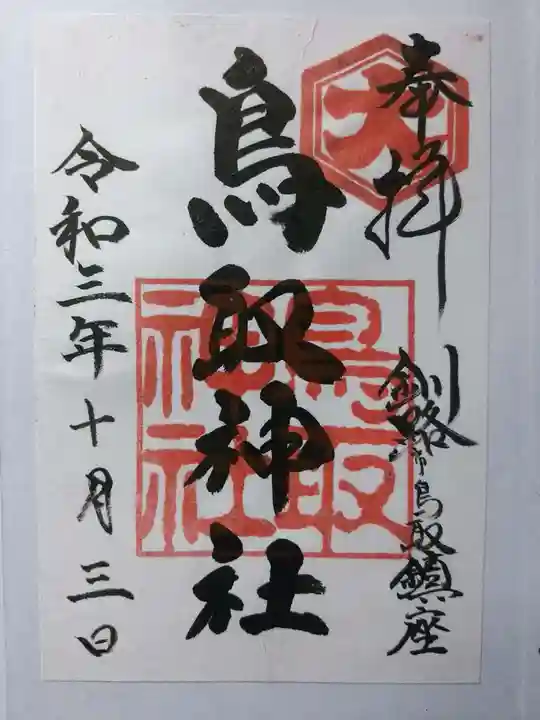 奉拝
釧路市鳥取鎮座
大
鳥取神社
鳥取
神社
令和三年十月三日